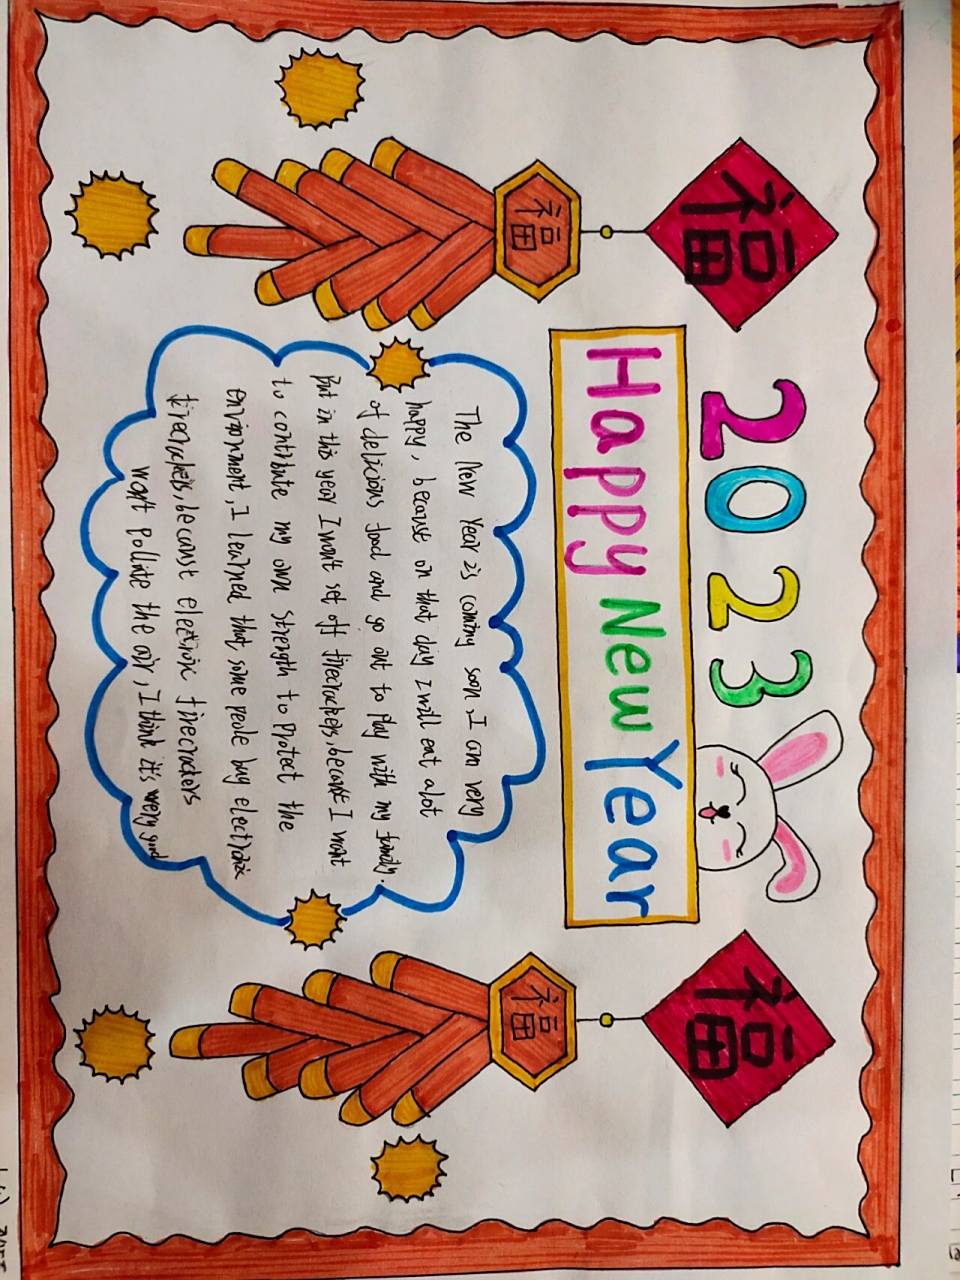 福
2023
福
Happy New Year
福
福
The New Year is coming soon, I am very
happy, because on that day I will eat alot
of delicious food and go out to play with my family.
But in this year I won't set off firecrackers, because I want
to contribute my own strength to protect the
environment, I learned that, some people buy electronic
firecrackers, because electronic firecrackers
won't pollute the air, I think it's very good